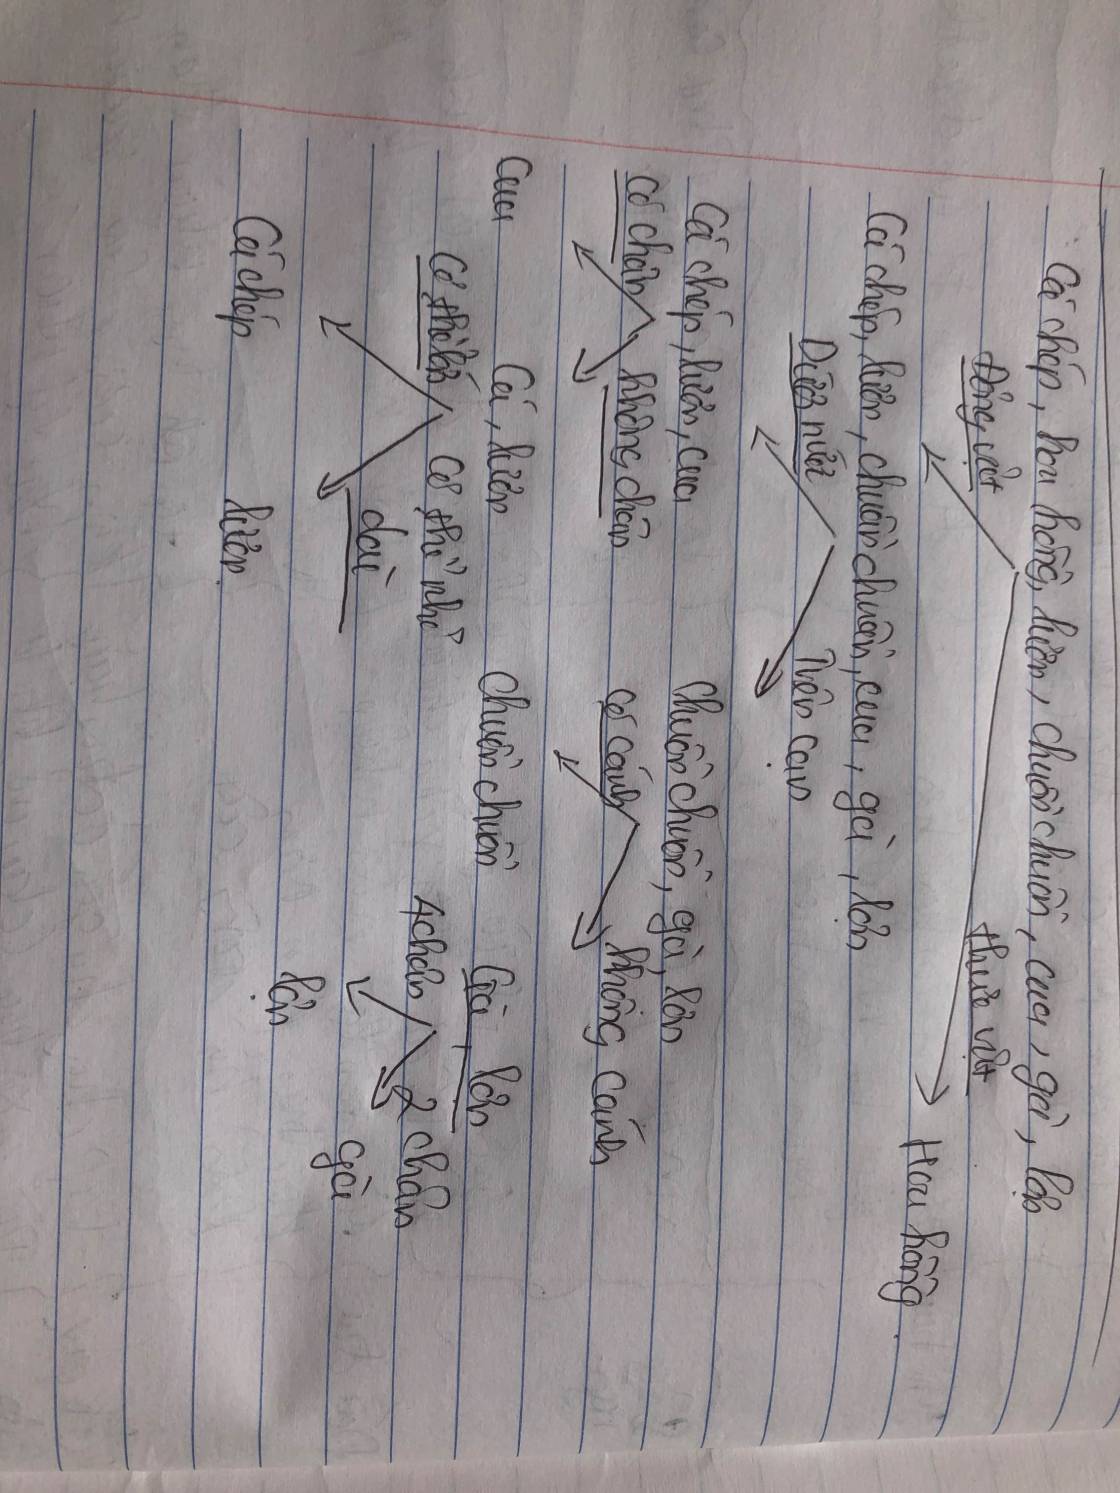 Cá chép, hoa hồng, lươn, chuồn chuồn, cua, gà, lợn
Động vật thực vật
Hoa hồng
Cá chép, lươn, chuồn chuồn, cua, gà, lợn
Dưới nước Trên cạn
Cá chép, lươn, cua chuồn chuồn, gà, lợn
Có chân không chân có cánh không cánh
Cua Cá, lươn chuồn chuồn Gà, lợn
Cơ thể nhỏ 4 chân 2 chân
dài
Cá chép lươn lợn gà